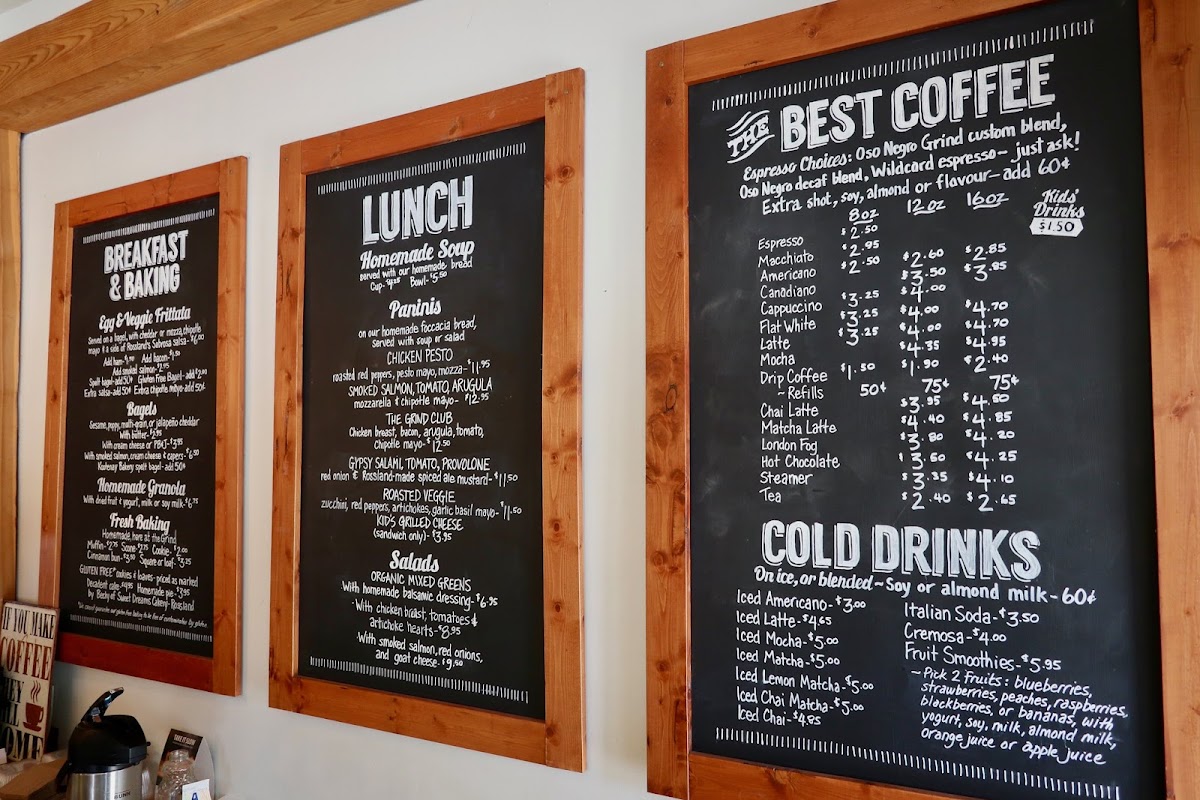 BREAKFAST
& BAKING
Egg & Veggie Frittata
Served on a bagel, with cheddar or mozza, chipotle
mayo & a side of Rossland's Sabrosa salsa-$6.00
Add bacon-$1.50
Add smoked salmon-$2.95
Spelt bagel-add 50¢ Gluten Free Bagel-add $2.00
Extra salsa-add 50¢ Extra chipotle mayo-add 50¢
Bagels
Sesame, poppy, multi-grain, or jalapeño cheddar
With butter-$2.95
With cream cheese or PB&J-$3.95
With smoked salmon, cream cheese & capers-$6.50
Kootenay Bakery spelt bagel-add 50¢
Homemade Granola
With dried fruit & yogurt, milk or soy milk-$6.75
Fresh Baking
Homemade, here at the Grind
Muffin-$2.75 Scone-$2.75 Cookie-$2.00
Cinnamon bun-$3.50 Square or loaf-$3.25
GLUTEN FREE* cookies & loaves-priced as marked
Decadent cake-$4.95 Homemade pie-$3.95
by Becky of Sweet Dreams Cakery-Rossland
LUNCH
Homemade Soup
served with our homemade bread
Cup-$4.25 Bowl-$5.50
Paninis
on our homemade foccacia bread,
served with soup or salad
CHICKEN PESTO
roasted red peppers, pesto mayo, mozza-$11.95
SMOKED SALMON, TOMATO, ARUGULA
mozzarella & chipotle mayo-$12.95
THE GRIND CLUB
Chicken breast, bacon, arugula, tomato,
Chipotle mayo-$12.50
GYPSY SALAMI, TOMATO, PROVOLONE
red onion & Rossland-made spiced ale mustard-$11.50
ROASTED VEGGIE
zucchini, red peppers, artichokes, garlic basil mayo-$11.50
KID'S GRILLED CHEESE
(sandwich only)-$3.95
Salads
ORGANIC MIXED GREENS
With homemade balsamic dressing-$6.95
-With chicken breast, tomatoes &
artichoke hearts-$8.95
-With smoked salmon, red onions,
and goat cheese-$9.50
THE BEST COFFEE
Espresso Choices: Oso Negro Grind custom blend,
Oso Negro decaf blend, Wildcard espresso-just ask!
Extra shot, soy, almond or flavour-add 60¢
8oz 12oz 16oz
Kids'
Drinks
$1.50
Espresso $2.50
Macchiato $2.95
Americano $2.50 $2.60 $2.85
Canadiano $3.50 $3.85
Cappuccino $3.25 $4.00
Flat White $3.25 $4.00 $4.70
Latte $3.25 $4.00 $4.70
Mocha $4.35 $4.95
Drip Coffee $1.50 $1.90 $2.40
~Refills 50¢ 75¢ 75¢
Chai Latte $3.95 $4.50
Matcha Latte $4.40 $4.85
London Fog $3.80 $4.20
Hot Chocolate $3.60 $4.25
Steamer $3.35 $4.10
Tea $2.40 $2.65
COLD DRINKS
On ice, or blended~Soy or almond milk-60¢
Iced Americano-$3.00
Iced Latte-$4.65
Iced Mocha-$5.00
Iced Matcha-$5.00
Iced Lemon Matcha-$5.00
Iced Chai Matcha-$5.00
Iced Chai-$4.85
Italian Soda-$3.50
Cremosa-$4.00
Fruit Smoothies-$5.95
~Pick 2 fruits: blueberries,
strawberries, peaches, raspberries,
blackberries, or bananas, with
yogurt, soy, milk, almond milk,
orange juice or apple juice
IF YOU MAKE
COFFEE
BUNN